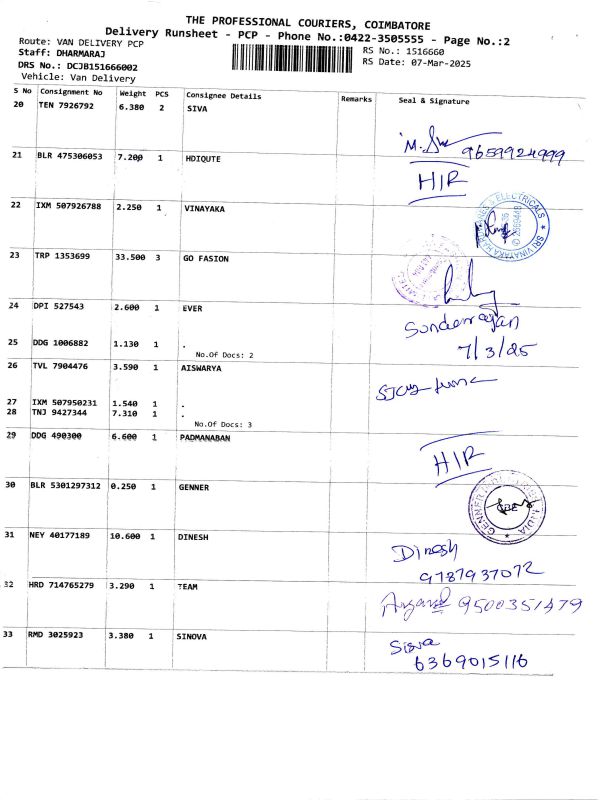 THE PROFESSIONAL COURIERS, COIMBATORE
Delivery Runsheet - PCP - Phone No.:0422-3505555 - Page No.:2
Route: VAN DELIVERY PCP
Staff: DHARMARAJ
DRS No.: DCJB151666002
Vehicle: Van Delivery
RS No.: 1516660
RS Date: 07-Mar-2025
S No Consignment No Weight PCS Consignee Details Remarks Seal & Signature
20 TEN 7926792 6.380 2 SIVA
9659924999
21 BLR 475306053 7.200 1 HDIQUTE
H/R
22 IXM 507926788 2.250 1 VINAYAKA
& ELECTRICALS ★ SRI VINAYAKA
23 TRP 1353699 33.500 3 GO FASION
24 DPI 527543 2.600 1 EVER
Sundarrajan
7/3/25
25 DDG 1006882 1.130 1 .
No.Of Docs: 2
26 TVL 7904476 3.590 1 AISWARYA
27 IXM 507950231 1.540 1 .
28 TNJ 9427344 7.310 1 .
No.Of Docs: 3
29 DDG 490300 6.600 1 PADMANABAN
H/R
30 BLR 5301297312 0.250 1 GENNER
GENNER INDIA
CBE
31 NEY 40177189 10.600 1 DINESH
Dinesh
9787937072
32 HRD 714765279 3.290 1 TEAM
9500351479
33 RMD 3025923 3.380 1 SINOVA
Siva
6369015116